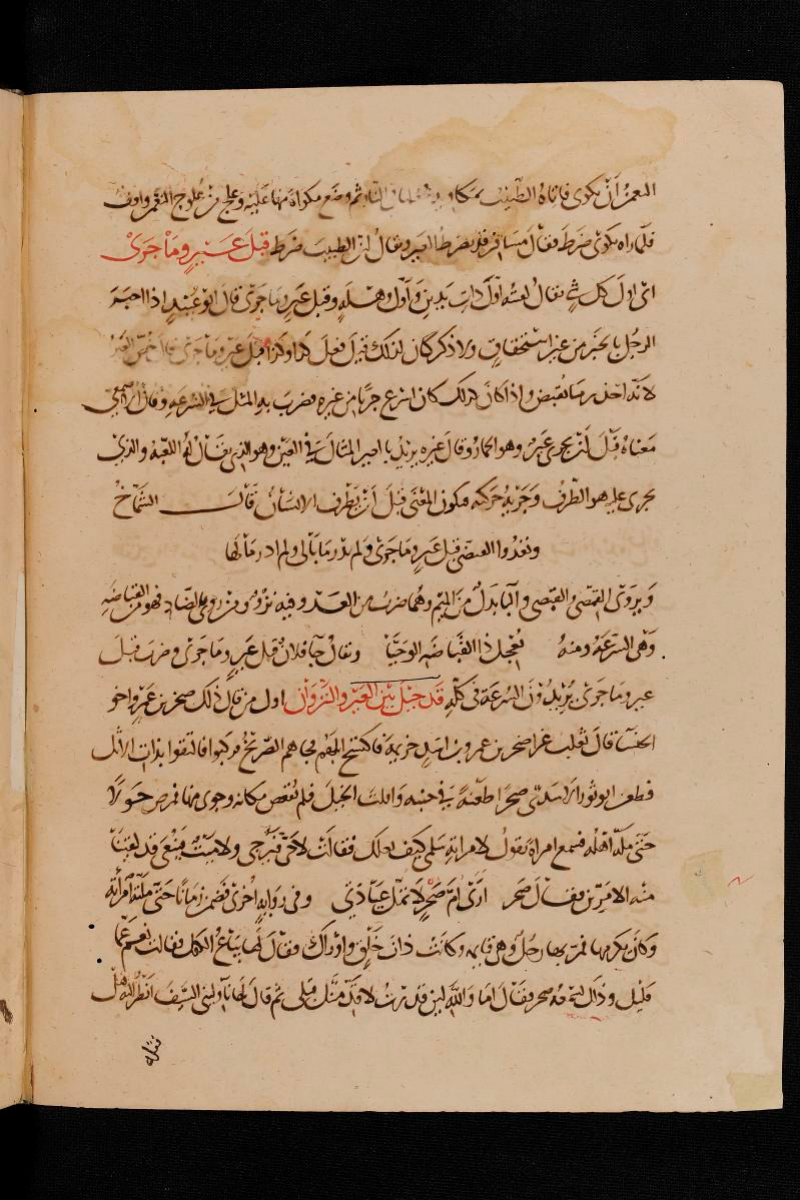 النعمن أن يكوى فاتاه الطبيب بمكاويه فجعلها في النار ثم وضع مكواة منها عليه وعلج من علوج النعمن واقف
فلما راه يكوى ضرط فقال مسافر قد يضرط العير ويقال ان الطبيب ضرط قبل عير وما جرى
اى اول كل شى يقال لقيته اول ذات يدين واول وهلة وقبل عير وما جرى قال ابو عبيد اذا اخبر
الرجل بالخبر من غير استحقاق ولا ذكر كان لذلك قيل فعل كذا وكذا قبل عير وما جرى قالوا خص العير
لانه احذر ما يقنص واذا كان كذلك كان اسرع جريا من غيره فضرب به المثل في السرعة وقال الاصمعي
معناه قبل أن يجرى عير وهو الحمار وقال غيره يريد بالعير المثال في العين وهو الذى يقال له اللعبة والذى
يجرى عليه هو الطرف وجريه حركته فيكون المعنى قبل أن يطرف الانسان قال الشماخ
وتعدوا القبصى قبل عير وما جرى ولم تدر ما بالى ولم ادر ما لها
ويروى القمصى والقبصى والبا بدل من الميم وهما ضرب من العدو وفيه نزو ومن روى بالضاد فهو من القباضه
وهى السرعة ومنه يعجل ذا القباضه الوحيا ويقال جا فلان قبل عير وما جرى وضرب قبل
عير وما جرى يريدون السرعة في كله قد حيل بين العير والنزوان اول من قال ذلك صخر بن عمرو اخو
الخنسا قال ثعلب غزا صخر بن عمرو بنى اسد بن خزيمه فاكتسح ابلهم فجاهم الصريخ فركبوا فالتقوا بذات الاثل
فطعن ابو ثور الاسدى صخرا طعنة في جنبه وافلت الخيل فلم يقعص مكانه وجوى منها فمرض حولا
حتى مله اهله فسمع امراة تقول لامراته سلمى كيف بعلك فقالت لا حى فيرجى ولا ميت فينعى قد لقينا
منه الامرين فقال صخر ارى ام صخر لا تمل عيادتى وفى رواية اخرى فمرض زمانا حتى ملته امراته
وكان يكرمها فمر بها رجل وهى قايمه وكانت ذات خلق واوراك فقال لها يباع الكفل فقالت نعم عما
قليل وذاك يسمعه صخر فقال اما والله لين قدرت لاقدمنك قبلى ثم قال لها ناولينى السيف انظر اليه هل
تقله